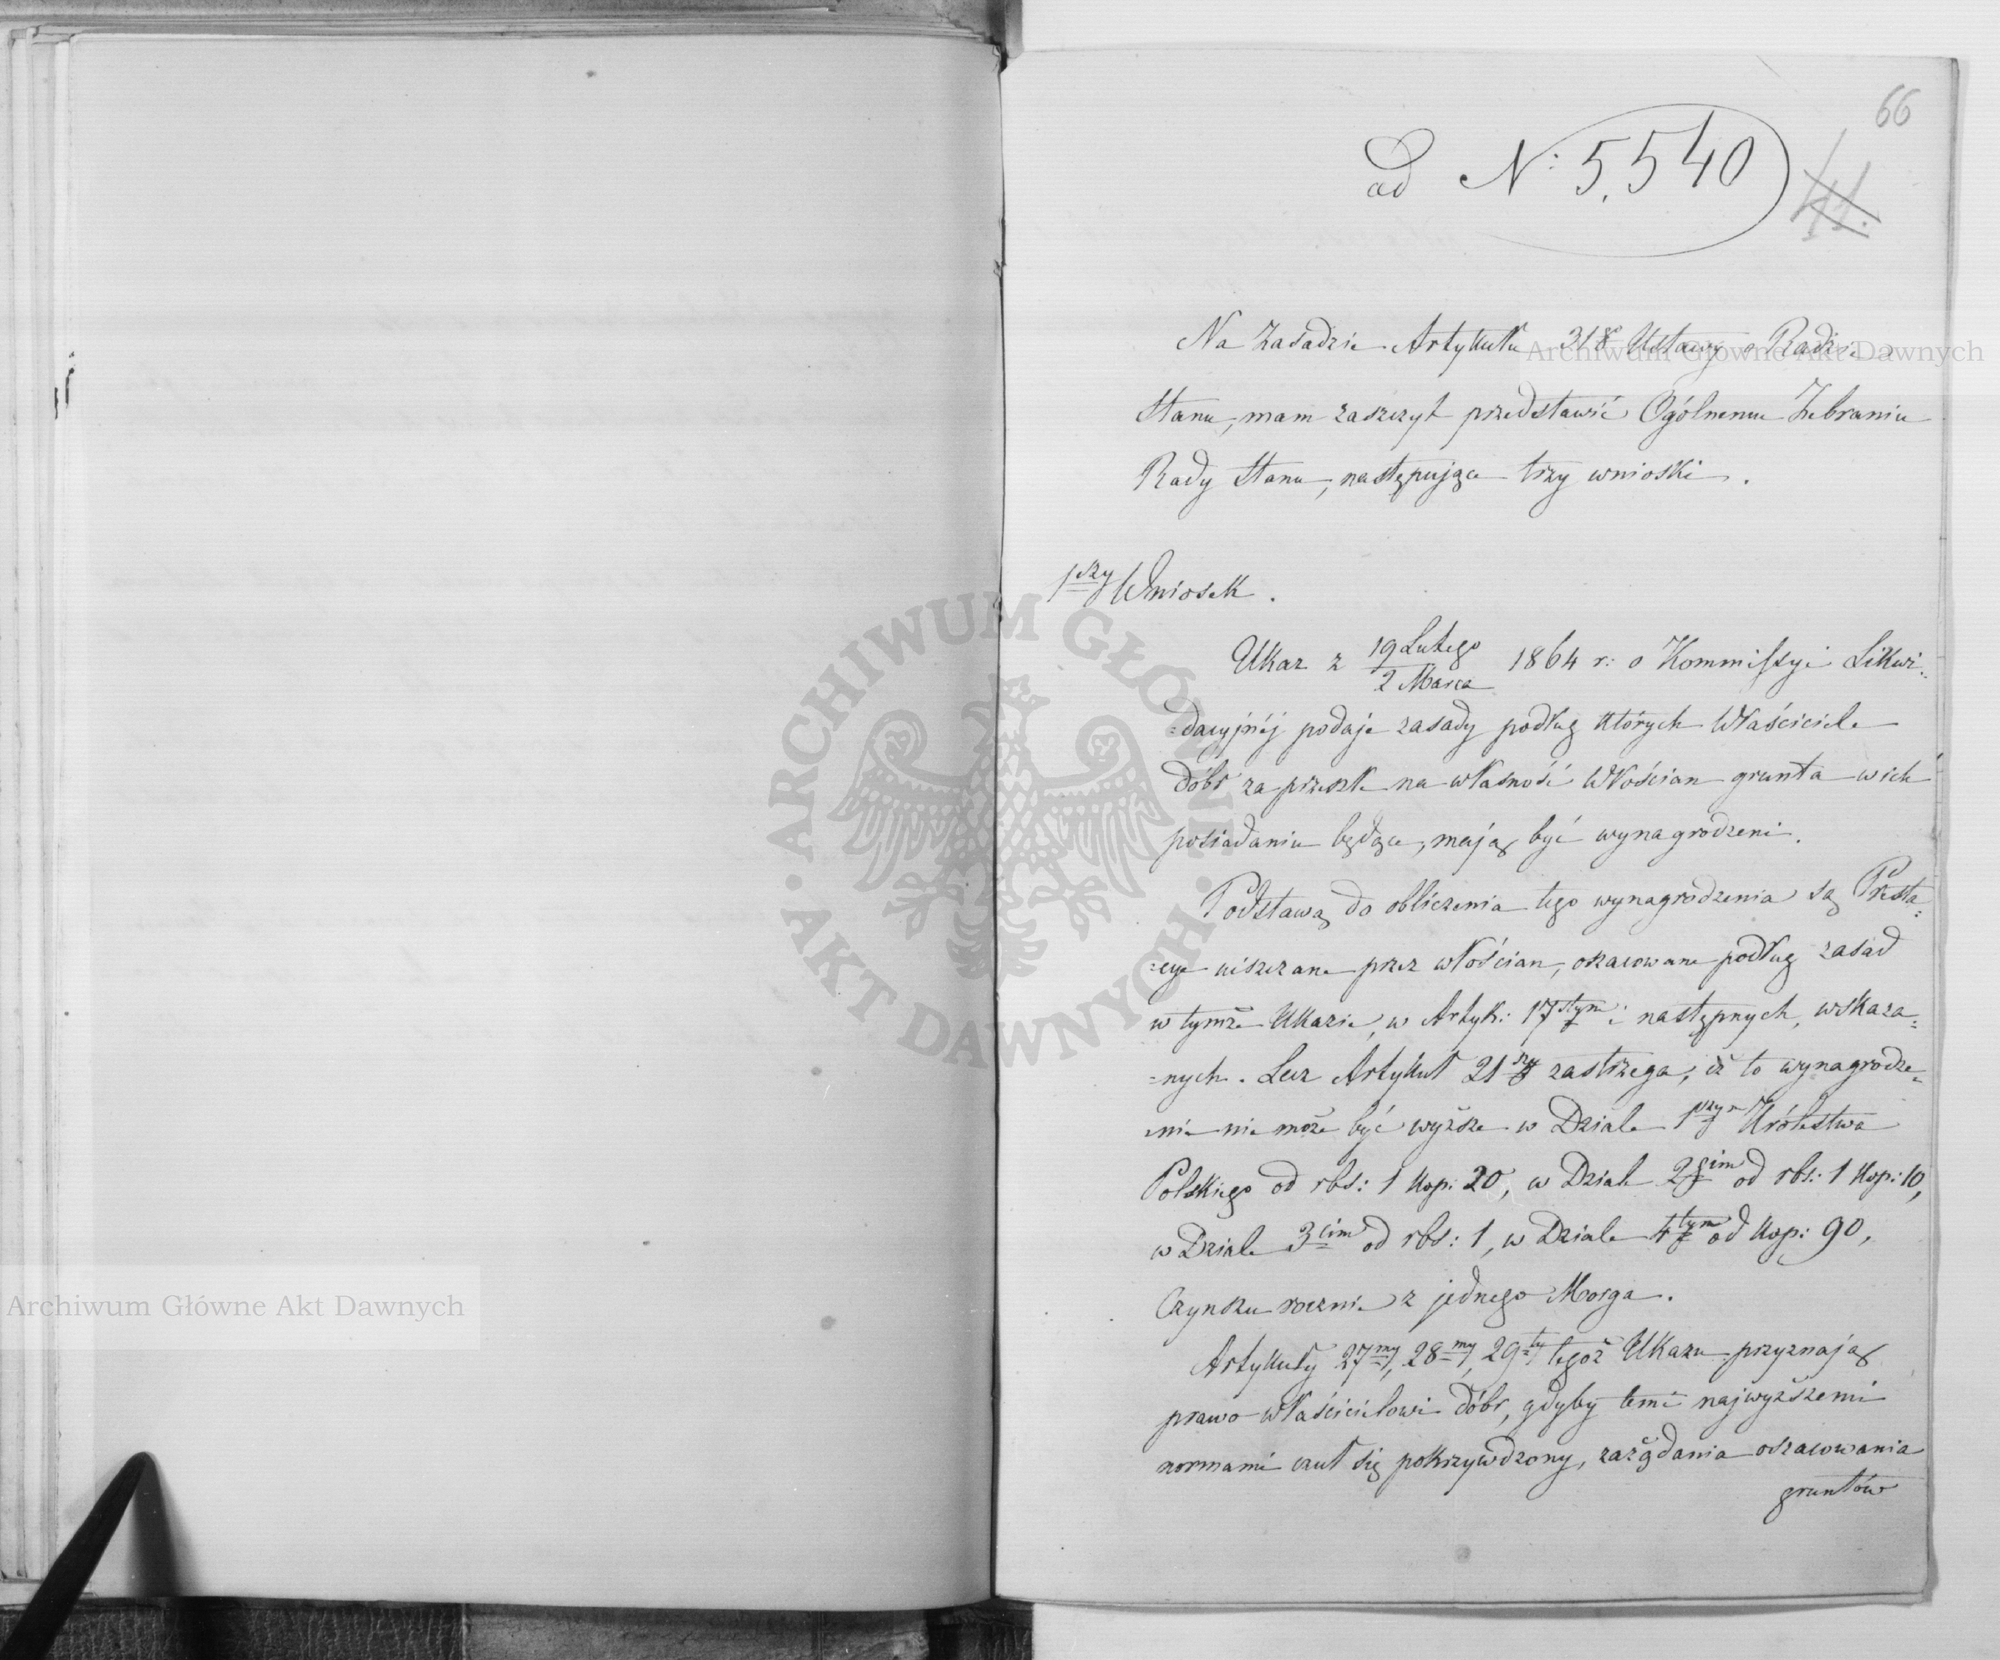 66
ad N: 5,540
41.
Na Zasadzie Artykułu 318 Ustawy o Radzie
Stanu, mam zaszczyt przedstawić Ogólnemu Zebraniu
Rady Stanu, następujące trzy wnioski.
1szy Wniosek.
Ukaz z 19 Lutego / 2 Marca 1864 r: o Kommissyi Likwi-
=dacyjnéj podaje zasady podług których Właściciele
dóbr za przeszłe na własność Włościan grunta w ich
posiadaniu będące, mają być wynagrodzeni.
Podstawą do obliczenia tego wynagrodzenia są Presta=
=cye uiszczane przez włościan, oszacowane podług zasad
w tymże Ukazie, w Artyk: 17stym i następnych, wskaza=
=nych. Lecz Artykuł 21szy zastrzega, iż to wynagrodze=
=nie nie może być wyższe w Dziale 1szym Królestwa
Polskiego od rbs: 1 kop: 20, w Dziale 2gim od rbs: 1 kop: 10,
w Dziale 3cim od rbs: 1, w Dziale 4tym od kop: 90,
Czynszu rocznie z jednego Morga.
Artykuły 27my, 28my, 29ty tegoż Ukazu przyznają
prawo właścicielowi dóbr, gdyby temi najwyższemi
normami czuł się pokrzywdzony, zażądania oszacowania
gruntów
Archiwum Główne Akt Dawnych
Archiwum Główne Akt Dawnych
· ARCHIWUM GŁÓWNE · AKT DAWNYCH ·